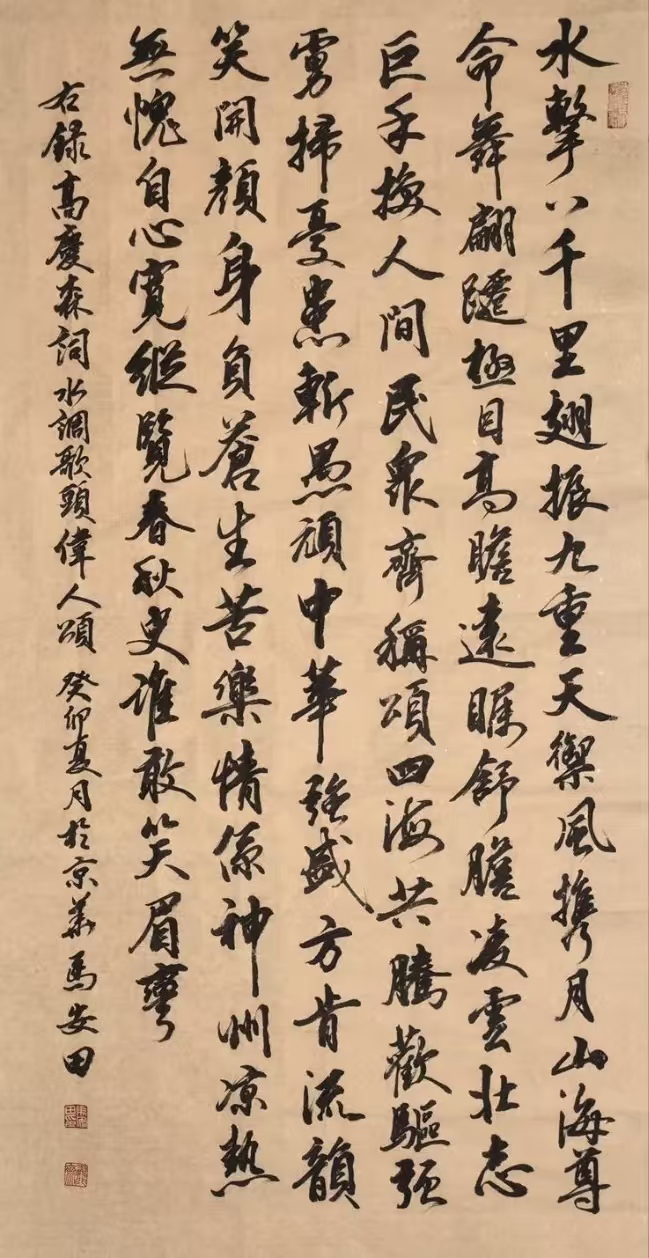 水擊八千里翅振九重天禦風攜月山海尊
命舞翩躚極目高瞻遠矚舒膽凌雲壯志
巨手換人間民衆齊稱頌四海共騰歡驅強
虜掃憂患斬愚頑中華強盛方肯流韻
笑開顏身負蒼生苦樂情係神州凉熱
無愧自心寬縱覽春秋史誰敢笑眉彎
右録高慶森詞水調歌頭偉人頌 癸卯夏月於京華馬安田